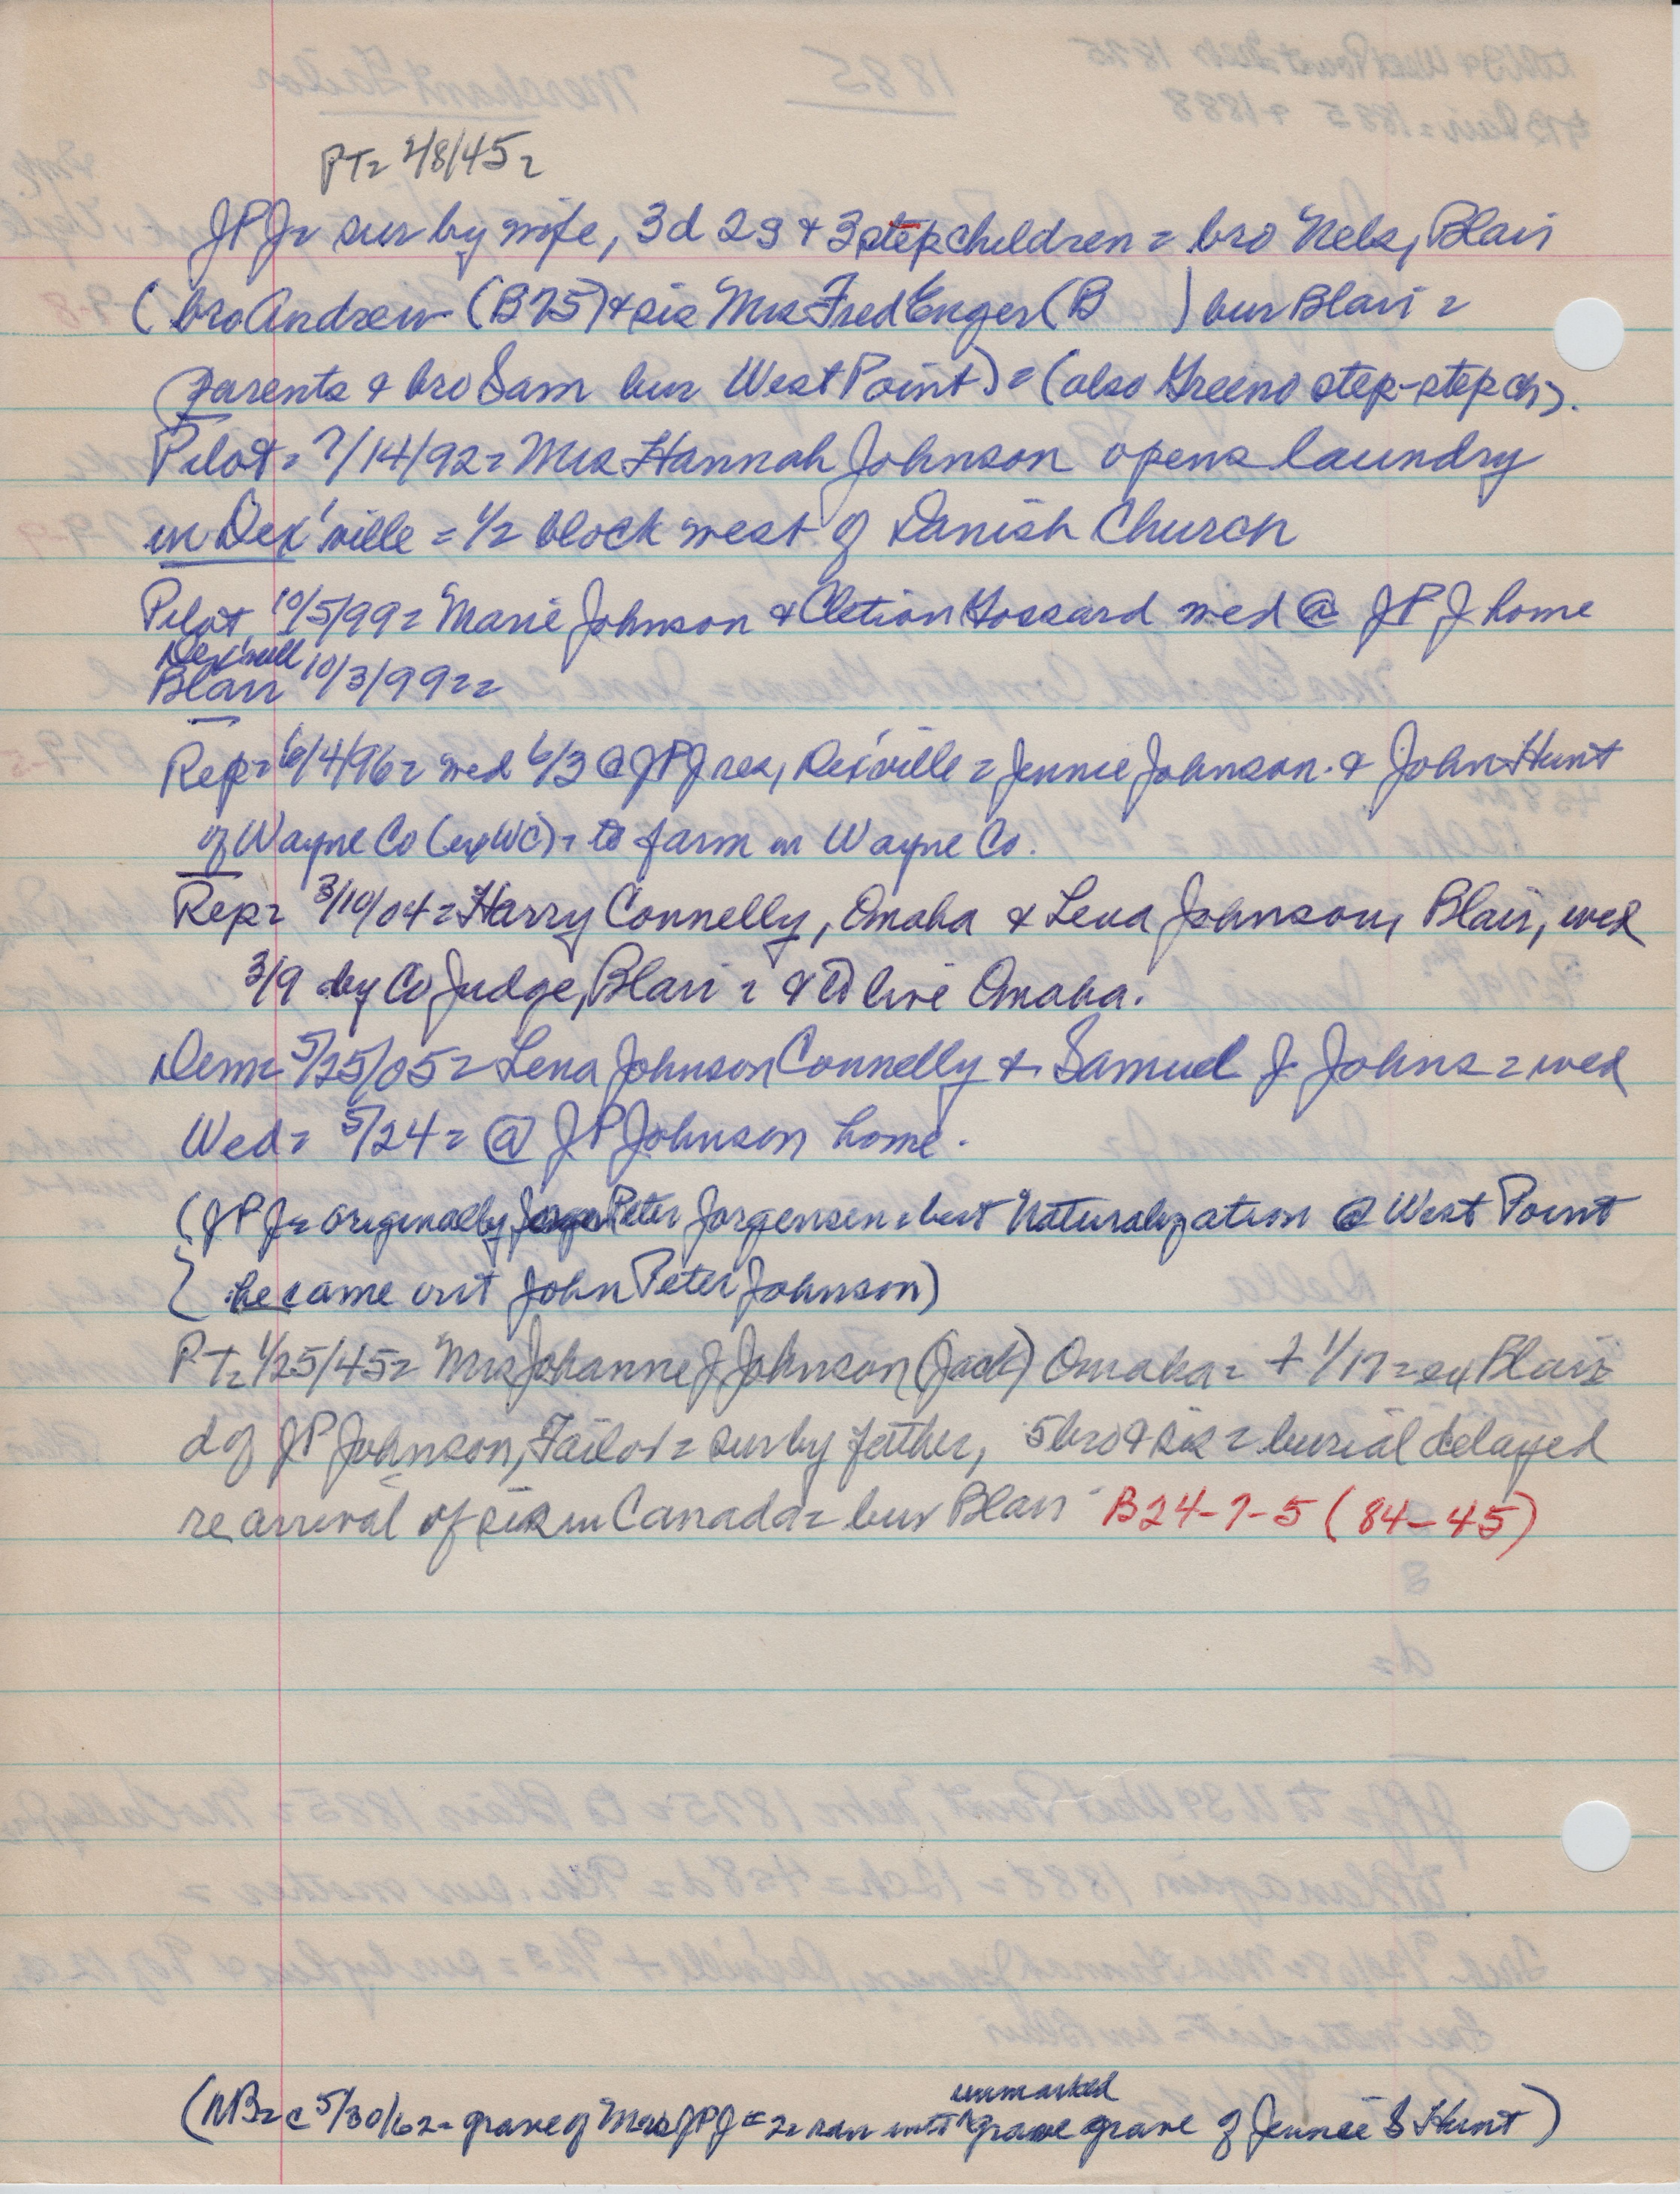 PT= 2/8/45=
JPJ= sur by wife, 3d 2s + 3 stepchildren = bro Nels, Blair
(bro Andrew (B75) + sis Mrs Fred Enger (B ) bur Blair =
Parents + bro Sam bur West Point) = (also Greeno step-step ch).
Pilot = 7/14/92 = Mrs Hannah Johnson opens laundry
in Dex'ville = 1/2 block west of Danish Church
Pilot 10/5/99 = Marie Johnson + Cletion Gossard wed @ JPJ home
Dex'vill
Blair 10/3/99 = =
Rep= 6/4/96 = wed 6/3 @ JPJ res, Dex'ville = Jennie Johnson + John Hunt
of Wayne Co (ex WC) = to farm in Wayne Co.
Rep= 3/10/04 = Harry Connelly, Omaha + Lena Johnson, Blair, wed
3/9 by Co Judge, Blair = + to live Omaha.
Dem= 5/25/05 = Lena Johnson Connelly + Samuel J Johns = wed
Wed = 5/24 = @ JP Johnson home.
(JPJ = originally Peter Jorgensen = but Naturalization @ West Point
he came out John Peter Johnson)
PT= 1/25/45 = Mrs Johanne J Johnson (Jack) Omaha = + 1/17 = ex Blair
d of JP Johnson, Tailor = sur by father, 5 bro + sis = burial delayed
re arrival of sis in Canada = bur Blair B24-7-5 (84-45)
unmarked
(MB= c 5/30/62 = grave of Mrs JPJ # 2 = ran into grave grave of Jennie S Hunt)